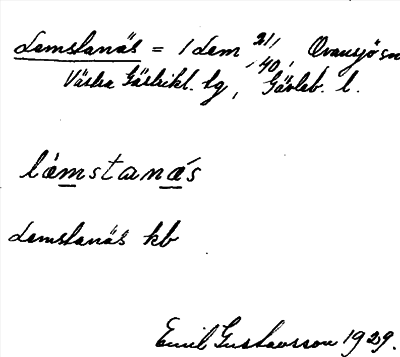 Lemstanäs = 1 dem 21/40, Ovansjö sn
Västra Gästrikl. tg, Gävleb. l.
lémstanäs
Lemstanäs kb
Emil Gustavsson 1929.